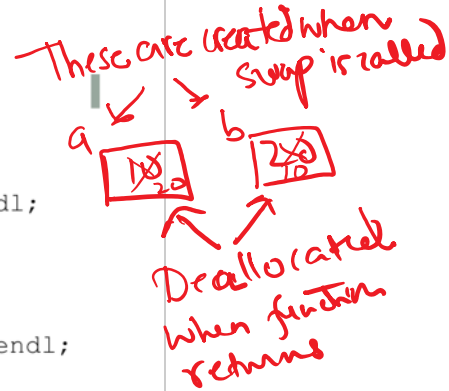 These are created when
swap is called
a
b
10
20
20
10
dl;
Deallocated
when function
returns
endl;